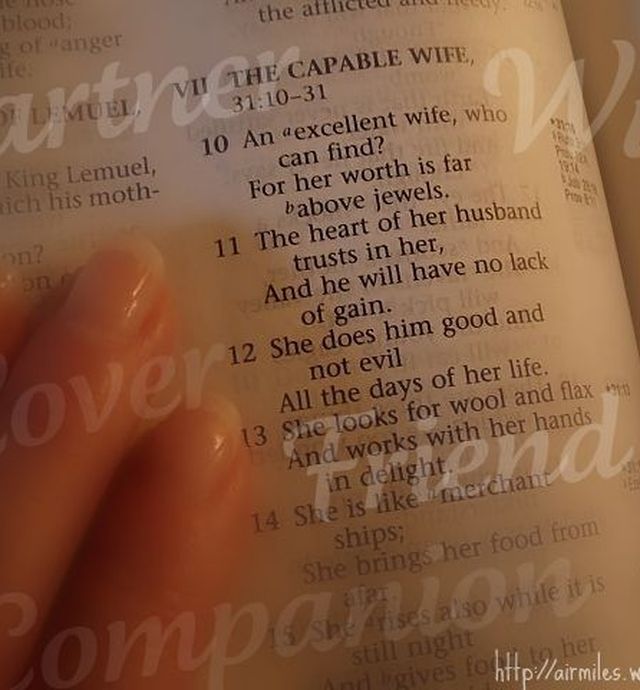 the afflicted and needy.
blood;
g of anger
ife.
OF LEMUEL,
King Lemuel,
ich his moth-
on?
VII THE CAPABLE WIFE,
31:10–31
10 An ᵃexcellent wife, who
can find?
For her worth is far
ᵇabove jewels.
11 The heart of her husband
trusts in her,
And he will have no lack
of gain.
12 She does him good and
not evil
All the days of her life.
13 She looks for wool and flax
And works with her hands
in delight.
14 She is like merchant
ships;
She brings her food from
afar.
15 She rises also while it is
still night
And gives food to her
artner
Wi
Lover
Friend
Companion
http://airmiles.w